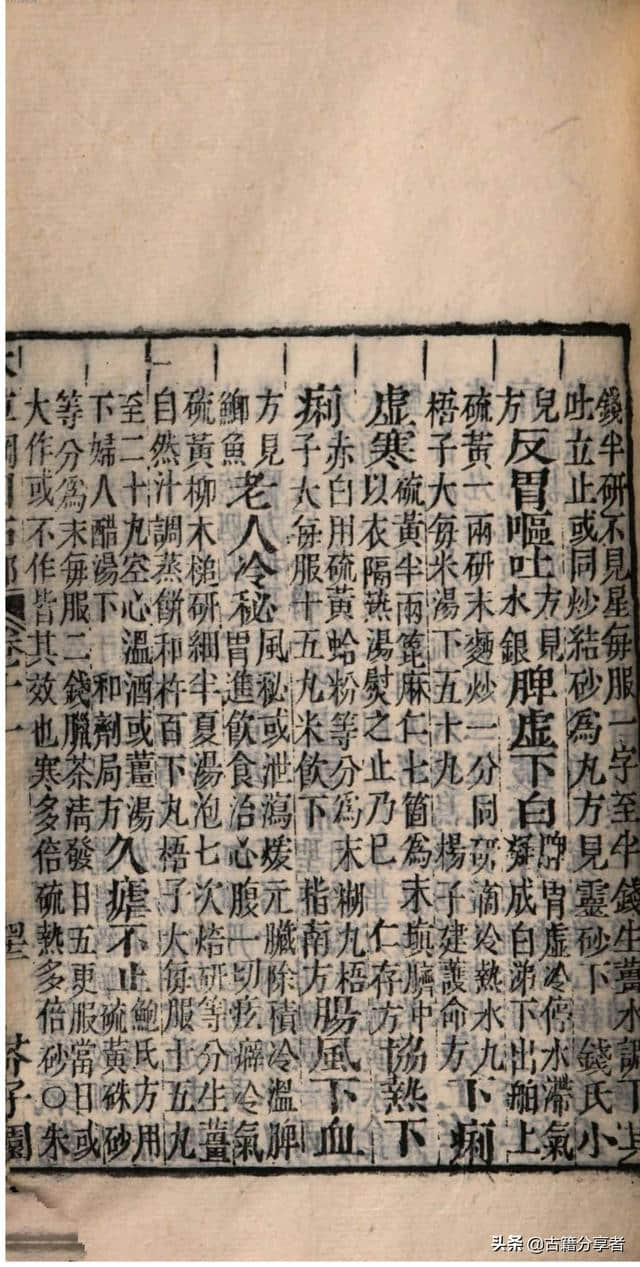 錢半研不見星每服一字至半錢生薑水調下其
吐立止或同炒結砂為丸方見靈砂下 錢氏小
兒方 反胃嘔吐 方見水銀 脾虛下白 脾胃虛冷停水滯氣凝成白涕下出舶上
硫黃一兩研末麵炒一分同研滴冷熱水丸
梧子大每米湯下五十丸 楊子建護命方 下痢
虛寒 硫黃半兩篦麻仁七箇為末填臍中以衣隔熱湯熨之止乃已 仁存方 協熱下
痢 赤白用硫黃蛤粉等分為末糊丸梧子大每服十五丸米飲下 指南方 腸風下血
方見鯽魚 老人冷秘 風秘或泄瀉煖元臟除積冷溫脾胃進飲食治心腹一切痃癖冷氣
硫黃柳木槌研細半夏湯泡七次焙研等分生薑
自然汁調蒸餅和杵百下丸梧子大每服十五丸
至二十丸空心溫酒或薑湯下婦人醋湯下 和劑局方 久瘧不止 鮑氏方用硫黃硃砂
等分為末每服二錢臘茶清發日五更服當日或
大作或不作皆其效也寒多倍硫熱多倍砂○朱
卷十一 芥子園
头条 @古籍分享者